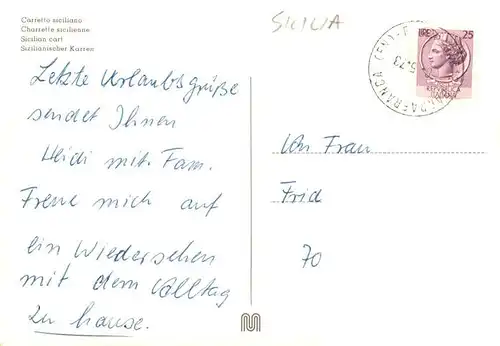 Carretto siciliano
Charrette sicilienne
Sicilian cart
Sizilianischer Karren
SICILIA
LIRE 25
Letzte Urlaubsgrüße
sendet Ihnen
Heidi mit Fam.
Freue mich auf
ein Wiedersehen
mit dem Alltag
zu hause.
Frau
Frid
70